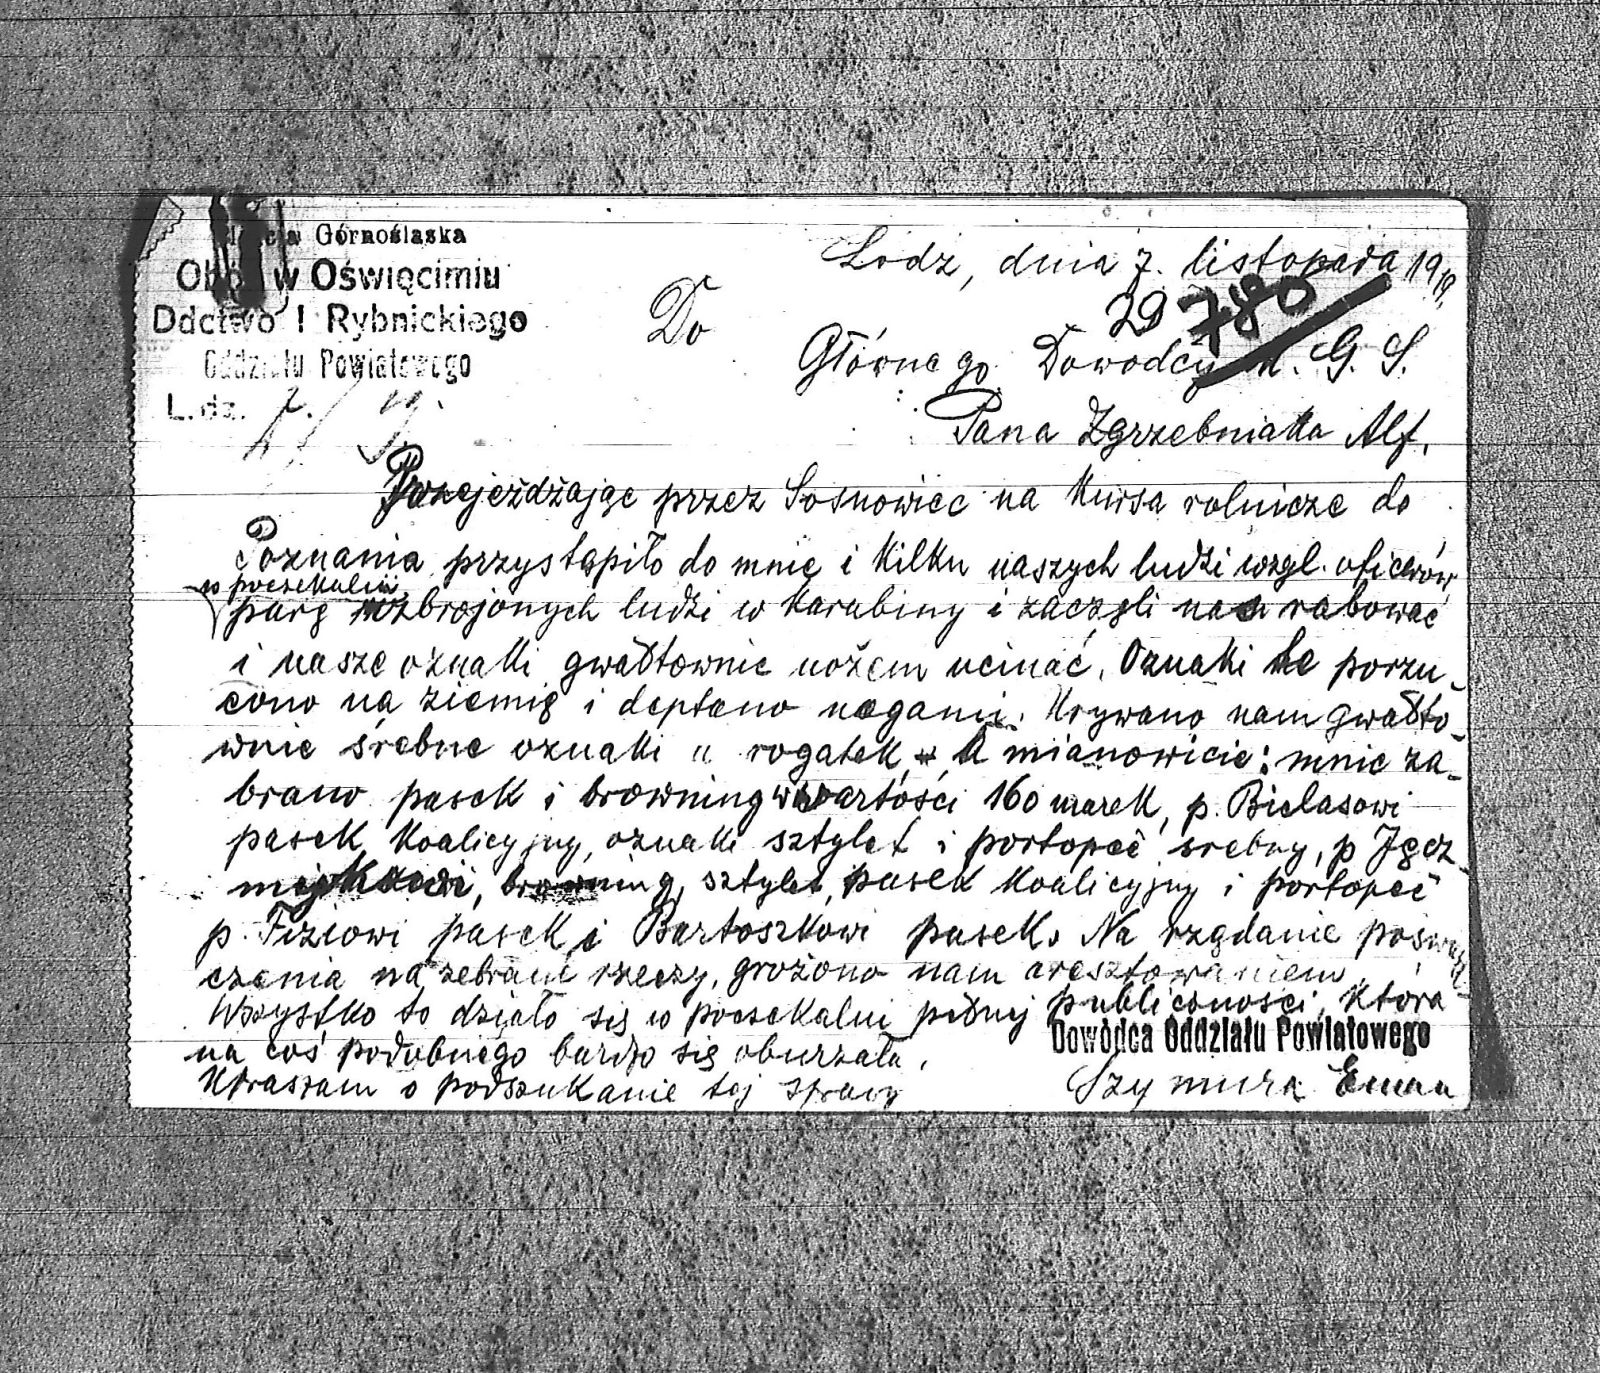 Górnoślaska
Obóz w Oświęcimiu
Ddctwo I Rybnickiego
Oddziału Powiatowego
L. dz. 7. / 19.
Łodz, dnia 7. listopada 1919.
29 780
Do
Głównego Dowodcy M. G. S.
Pana Zgrzebniaka Alf.
Przejeżdżając przez Sosnowiec na Kursa rolnicze do
Poznania, przystąpiło do mnie i kilku naszych ludzi wzgl. oficerów
w poczekalni
parę uzbrojonych ludzi w karabiny i zaczęli nam rabować
i nasze oznaki gwałtownie nożem ucinać. Oznaki te porzu-
cono na ziemię i deptano nogami. Urywano nam gwałto-
wnie śrebne oznaki u rogatek, a mianowicie: mnie za-
brano pasek i browning wartości 160 marek, p. Bielasowi
pasek koalicyjny, oznaki sztylet i portopeć srebny, p Jęcz-
browning, sztylet, pasek koalicyjny i portopeć
p. Fiziowi pasek i Bartoszkowi pasek. Na rządanie
czenia na zebrane rzeczy, grożono nam aresztowaniem.
Wszystko to działo się w poczekalni pełnej publiconości, która
na coś podobnego bardzo się oburzała.
Upraszam o podszukanie tej sprawy
Dowódca Oddziału Powiatowego
Szymura Eman